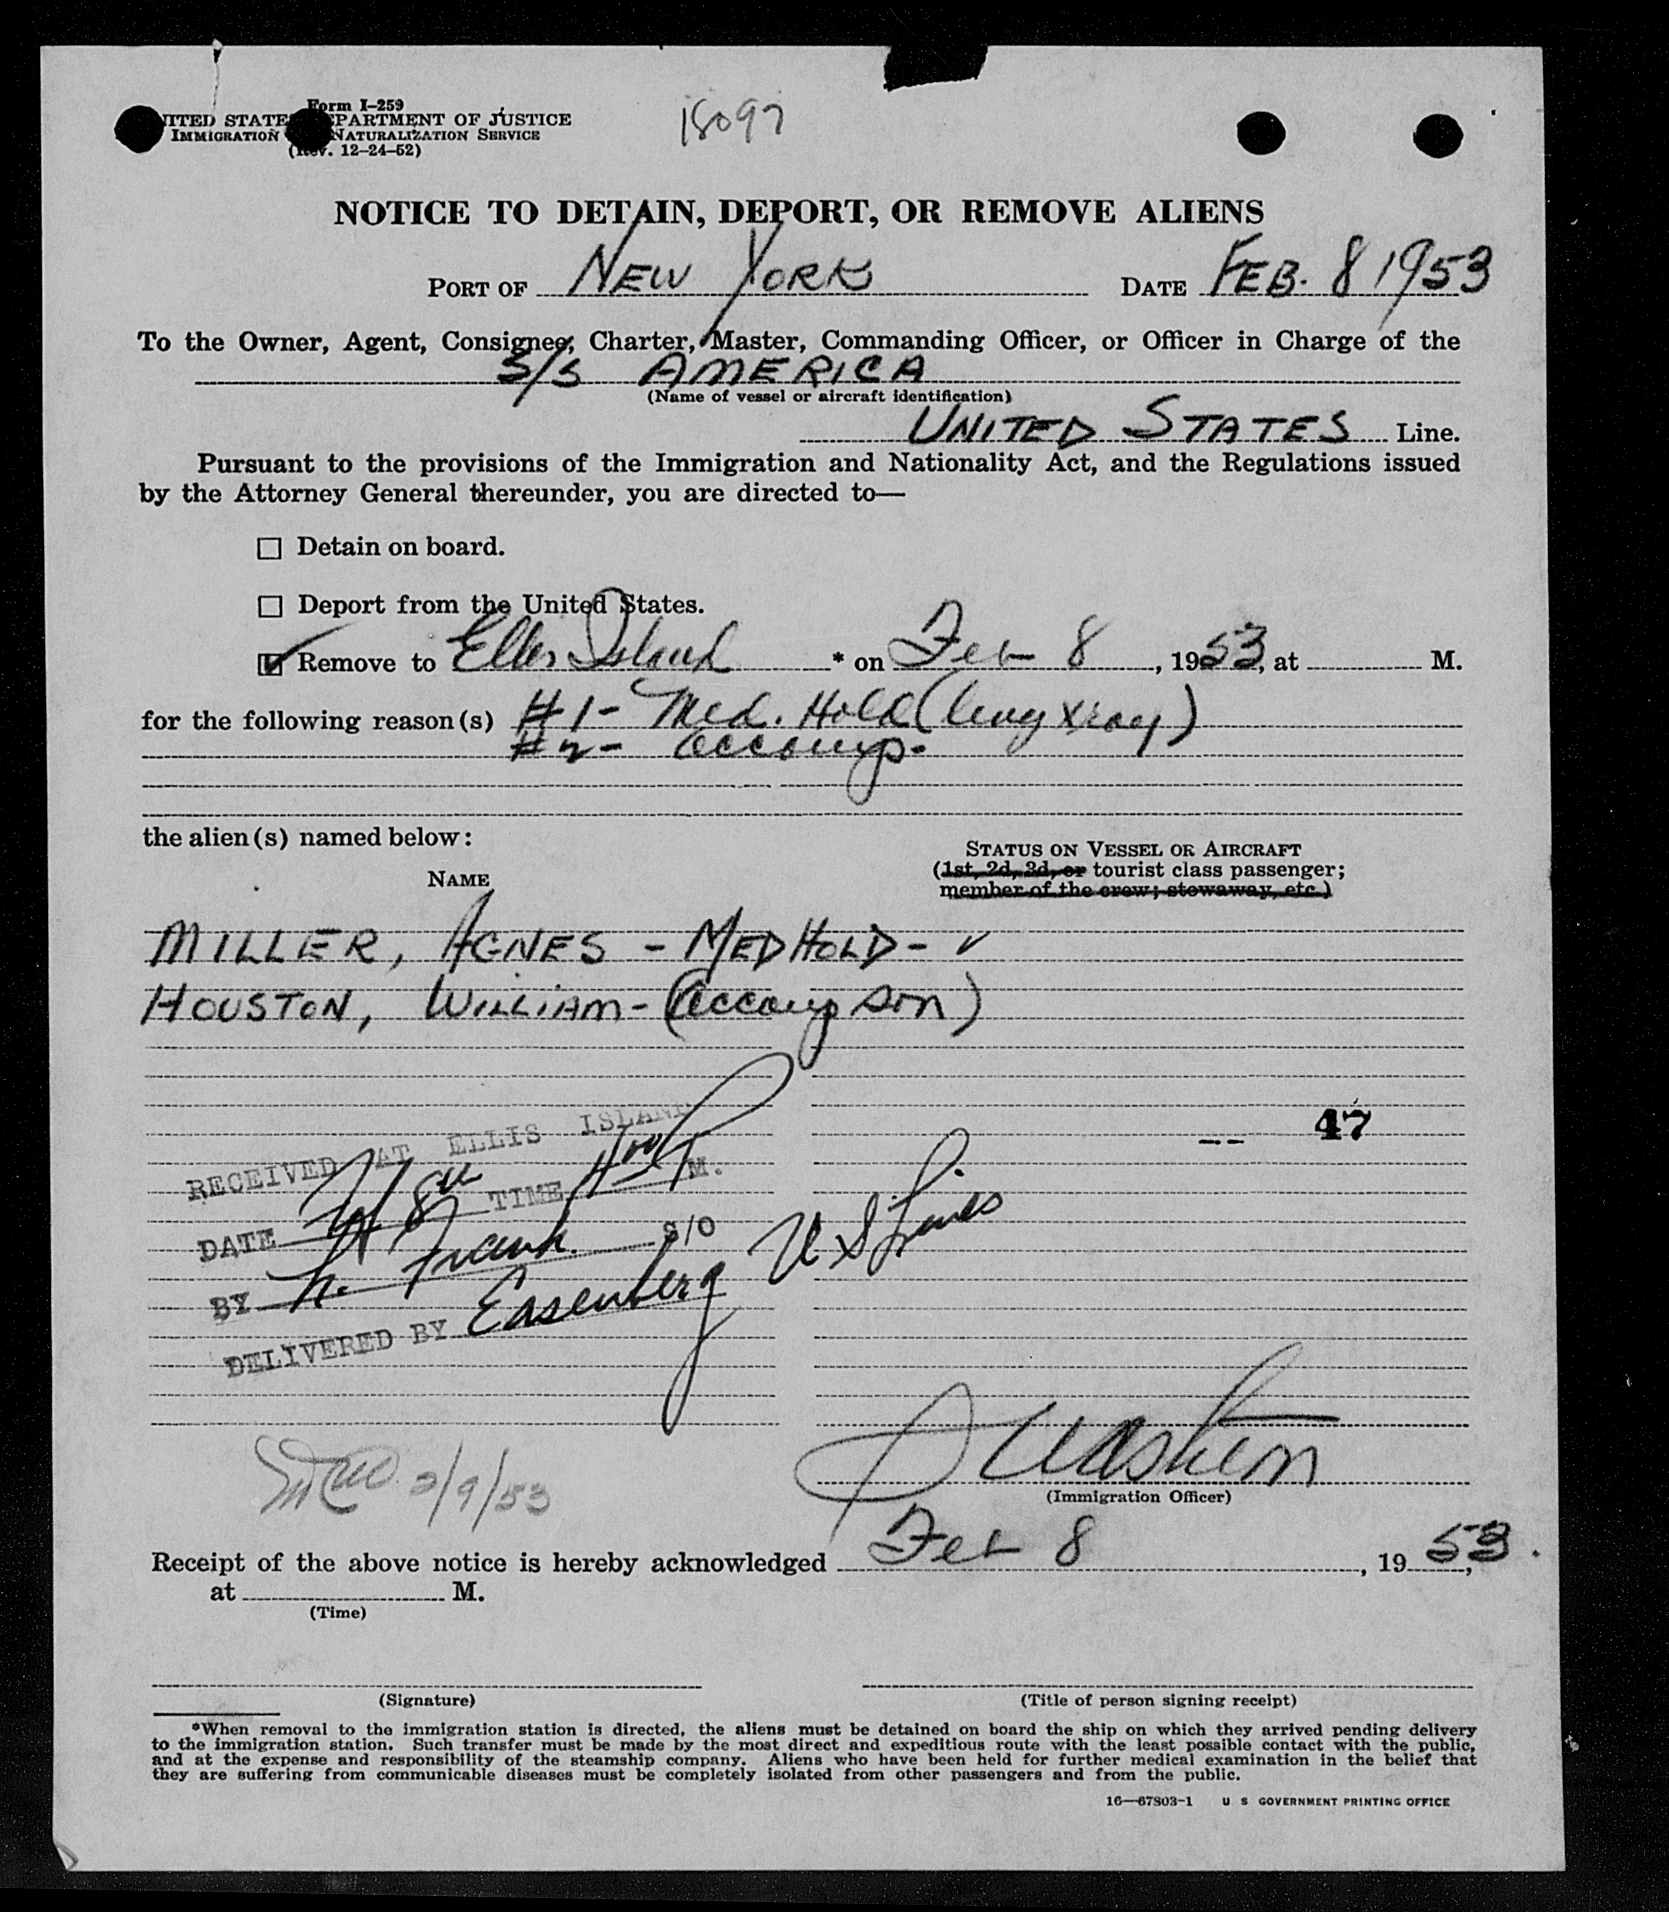 Form I-259
18097
UNITED STATES DEPARTMENT OF JUSTICE
IMMIGRATION NATURALIZATION SERVICE
(Rev. 12-24-52)
NOTICE TO DETAIN, DEPORT, OR REMOVE ALIENS
PORT OF NEW YORK DATE FEB. 8 1953
To the Owner, Agent, Consignee, Charter, Master, Commanding Officer, or Officer in Charge of the
S/S AMERICA
(Name of vessel or aircraft identification)
UNITED STATES Line.
Pursuant to the provisions of the Immigration and Nationality Act, and the Regulations issued
by the Attorney General thereunder, you are directed to—
Detain on board.
Deport from the United States.
Remove to Ellis Island * on Feb 8, 1953, at M.
for the following reason(s) #1- Med. Hold (lung xray)
#2- accomp.
the alien(s) named below:
STATUS ON VESSEL OR AIRCRAFT
(1st, 2d, 3d, or tourist class passenger;
NAME
member of the crew; stowaway, etc.)
MILLER, AGNES - MED HOLD - ✓
HOUSTON, WILLIAM - (accomp son)
-- 47
RECEIVED AT ELLIS ISLAND
DATE Feb 8th TIME 400 P M.
BY H. Frank S/O
DELIVERED BY Easenberg U S Lines
2/9/53
(Immigration Officer)
Receipt of the above notice is hereby acknowledged Feb 8, 1953.
at M.
(Time)
(Signature) (Title of person signing receipt)
*When removal to the immigration station is directed, the aliens must be detained on board the ship on which they arrived pending delivery
to the immigration station. Such transfer must be made by the most direct and expeditious route with the least possible contact with the public,
and at the expense and responsibility of the steamship company. Aliens who have been held for further medical examination in the belief that
they are suffering from communicable diseases must be completely isolated from other passengers and from the public.
16—67803-1 U S GOVERNMENT PRINTING OFFICE